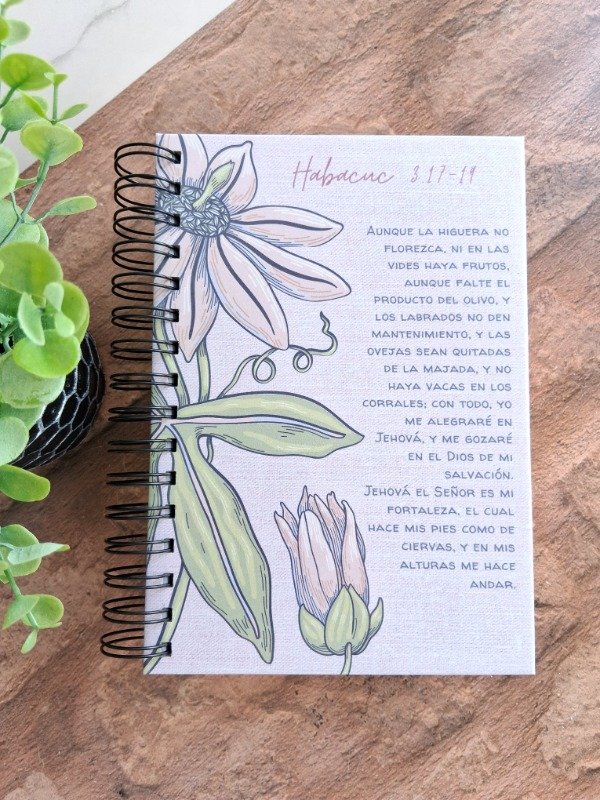 Habacuc 3.17-19
Aunque la higuera no
florezca, ni en las
vides haya frutos,
aunque falte el
producto del olivo, y
los labrados no den
mantenimiento, y las
ovejas sean quitadas
de la majada, y no
haya vacas en los
corrales; con todo, yo
me alegraré en
Jehová, y me gozaré
en el Dios de mi
salvación.
Jehová el Señor es mi
fortaleza, el cual
hace mis pies como de
ciervas, y en mis
alturas me hace
andar.